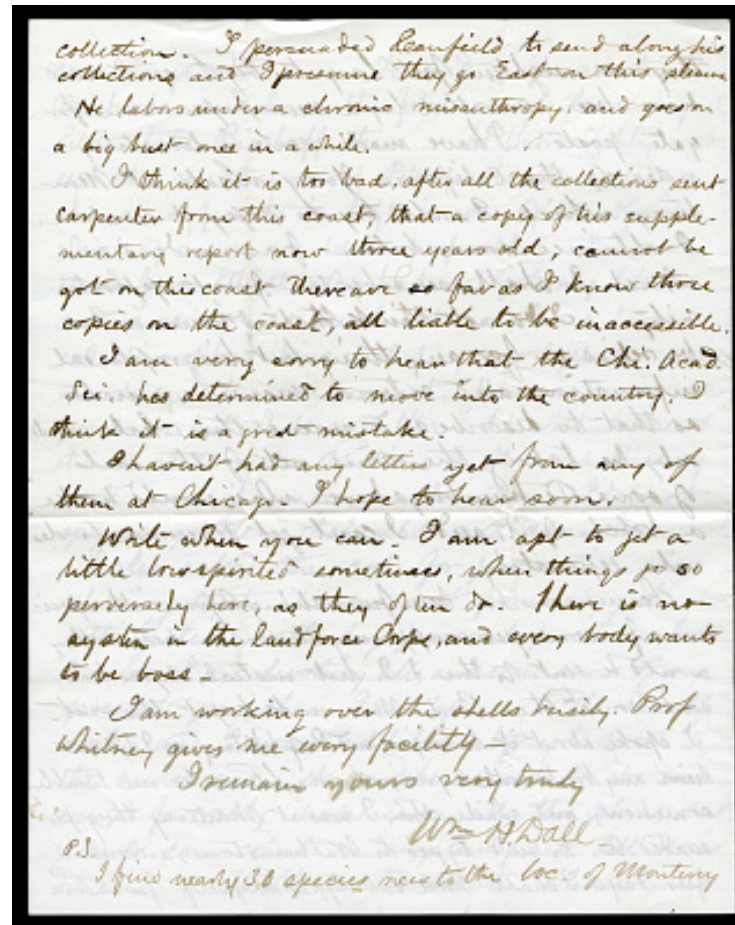 collection. I persuaded Canfield to send along his
collections and I presume they go East on this steamer
He labors under a chronic misanthropy. and goes on
a big bust once in a while.
I think it is too bad, after all the collections sent
Carpenter from this coast, that a copy of his supple-
mentary report now three years old, cannot be
got on this coast. there are so far as I know three
copies on the coast, all liable to be inaccessible.
I am very sorry to hear that the Chi. Acad.
Sci. has determined to move into the country. I
think it is a great mistake.
I haven't had any letters yet from any of
them at Chicago I hope to hear soon.
Write when you can I am apt to get a
little low spirited sometimes, when things go so
perversely here, as they often do. There is no
system in the land force Corps, and every body wants
to be boss_
I am working over the shells busily. Prof
Whitney gives me every facility_
I remain yours very truly
Wm H. Dall_
P.S.
I find nearly 30 species new to the loc. of Monterey